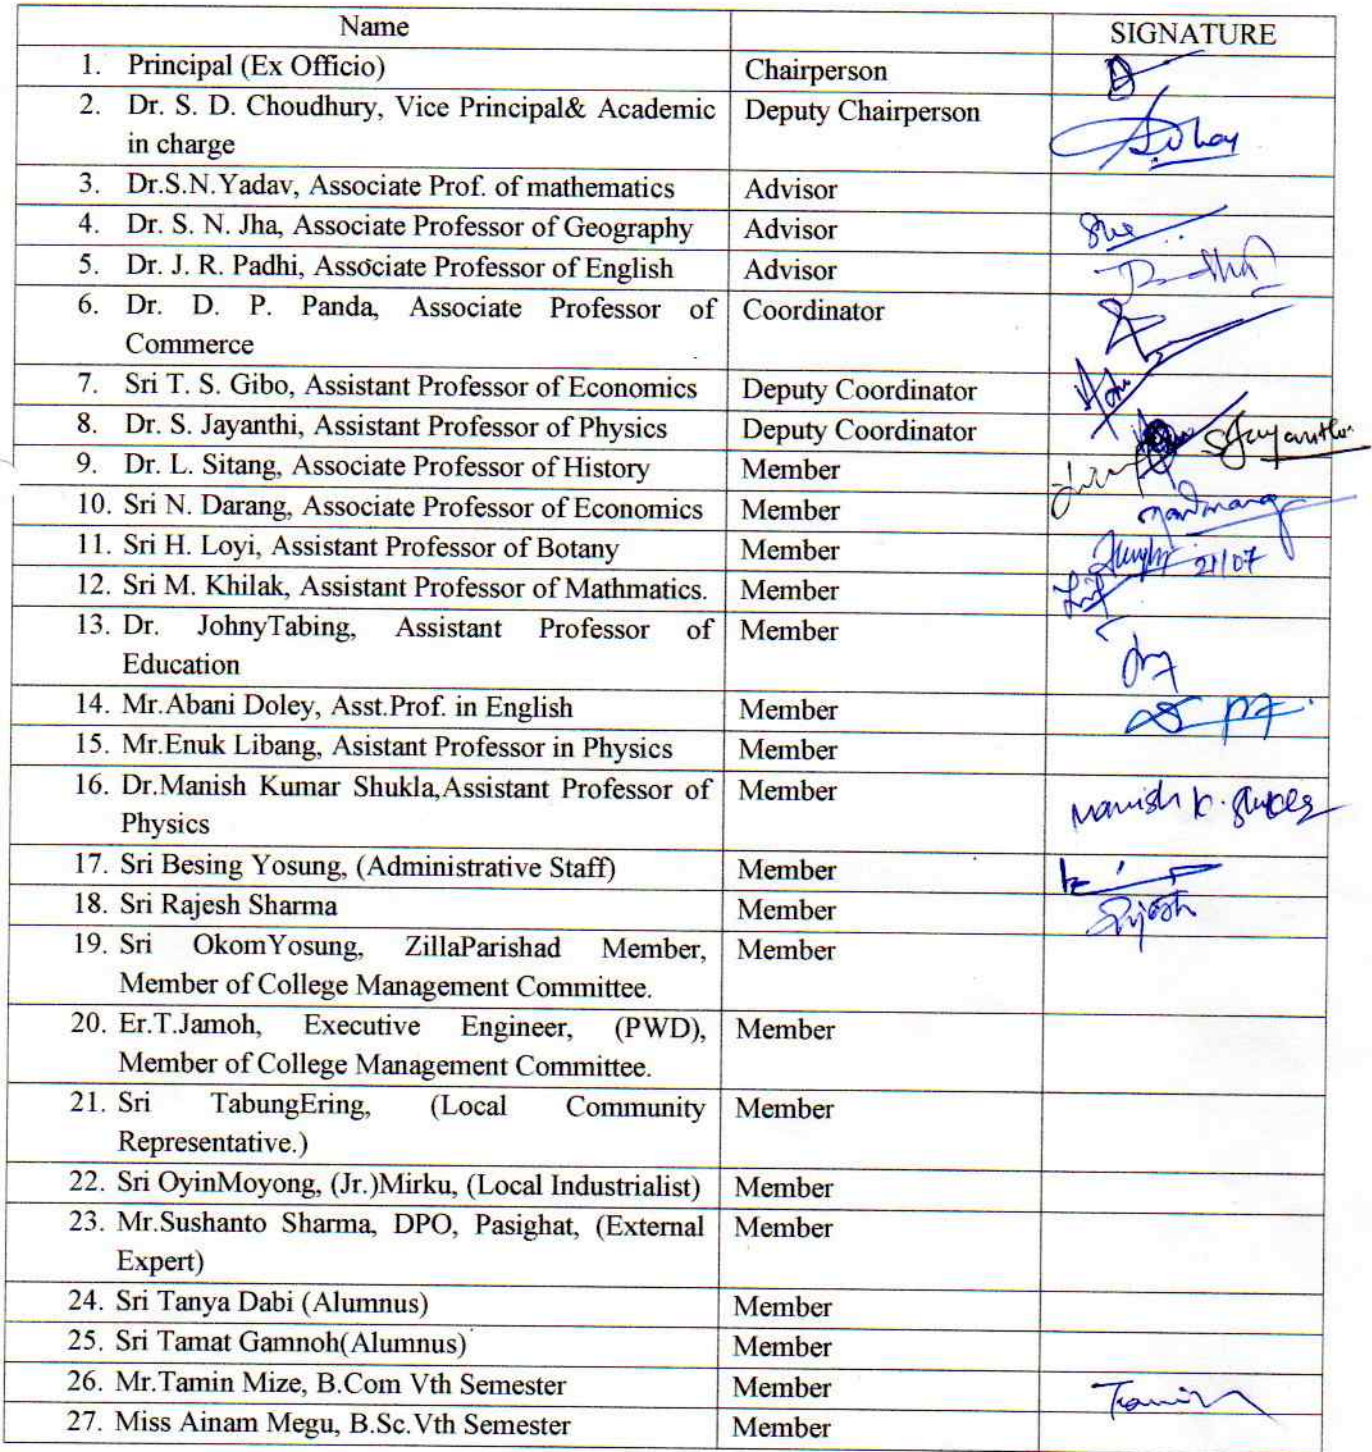 Name SIGNATURE
1. Principal (Ex Officio) Chairperson
2. Dr. S. D. Choudhury, Vice Principal& Academic Deputy Chairperson
in charge
3. Dr.S.N.Yadav, Associate Prof. of mathematics Advisor
4. Dr. S. N. Jha, Associate Professor of Geography Advisor
5. Dr. J. R. Padhi, Associate Professor of English Advisor
6. Dr. D. P. Panda, Associate Professor of Coordinator
Commerce
7. Sri T. S. Gibo, Assistant Professor of Economics Deputy Coordinator
8. Dr. S. Jayanthi, Assistant Professor of Physics Deputy Coordinator SJayanthi
9. Dr. L. Sitang, Associate Professor of History Member
10. Sri N. Darang, Associate Professor of Economics Member
11. Sri H. Loyi, Assistant Professor of Botany Member 21/07
12. Sri M. Khilak, Assistant Professor of Mathmatics. Member
13. Dr. JohnyTabing, Assistant Professor of Member
Education
14. Mr.Abani Doley, Asst.Prof. in English Member
15. Mr.Enuk Libang, Asistant Professor in Physics Member
16. Dr.Manish Kumar Shukla,Assistant Professor of Member Manish K. Shukla
Physics
17. Sri Besing Yosung, (Administrative Staff) Member
18. Sri Rajesh Sharma Member Rajesh
19. Sri OkomYosung, ZillaParishad Member, Member
Member of College Management Committee.
20. Er.T.Jamoh, Executive Engineer, (PWD), Member
Member of College Management Committee.
21. Sri TabungEring, (Local Community Member
Representative.)
22. Sri OyinMoyong, (Jr.)Mirku, (Local Industrialist) Member
23. Mr.Sushanto Sharma, DPO, Pasighat, (External Member
Expert)
24. Sri Tanya Dabi (Alumnus) Member
25. Sri Tamat Gamnoh(Alumnus) Member
26. Mr.Tamin Mize, B.Com Vth Semester Member Tamin
27. Miss Ainam Megu, B.Sc.Vth Semester Member